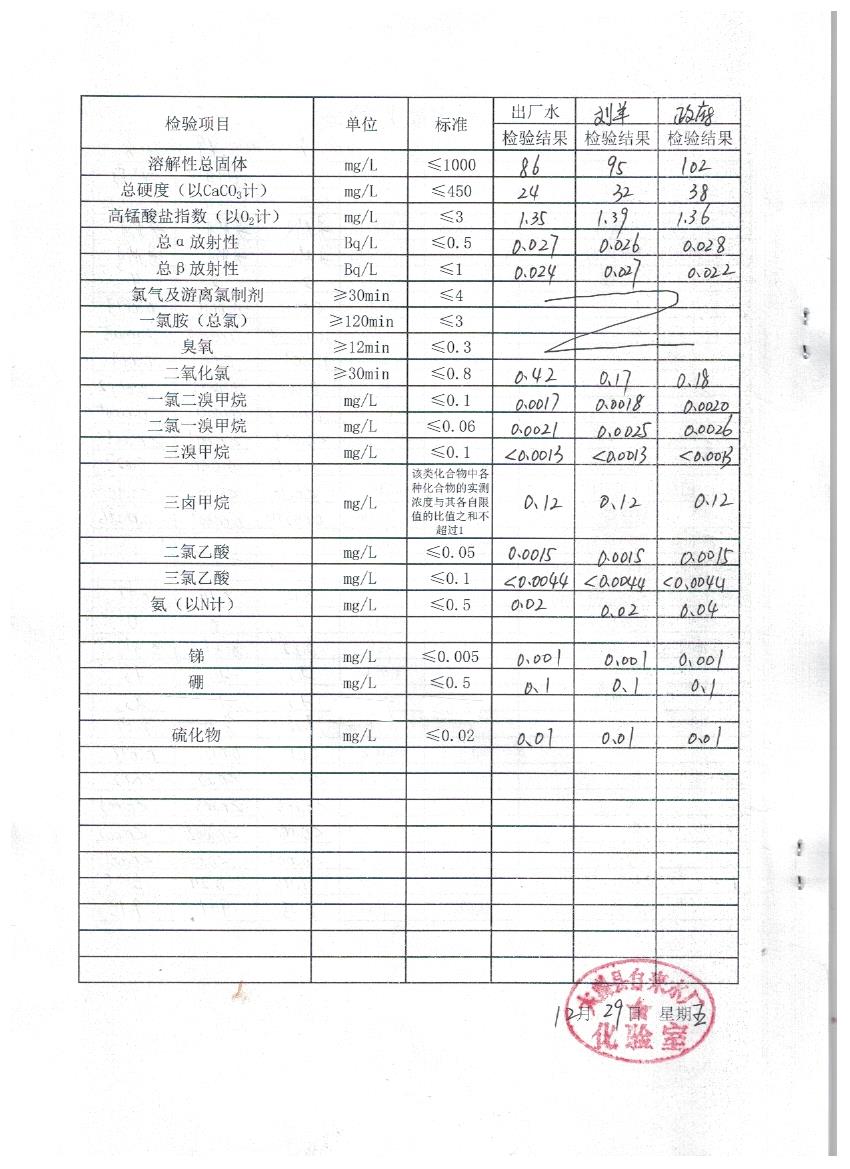 检验项目 单位 标准 出厂水 刘羊 政府
检验结果 检验结果 检验结果
溶解性总固体 mg/L ≤1000 86 95 102
总硬度（以CaCO₃计） mg/L ≤450 24 32 38
高锰酸盐指数（以O₂计） mg/L ≤3 1.35 1.39 1.36
总α放射性 Bq/L ≤0.5 0.027 0.026 0.028
总β放射性 Bq/L ≤1 0.024 0.027 0.022
氯气及游离氯制剂 ≥30min ≤4
一氯胺（总氯） ≥120min ≤3
臭氧 ≥12min ≤0.3
二氧化氯 ≥30min ≤0.8 0.42 0.17 0.18
一氯二溴甲烷 mg/L ≤0.1 0.0017 0.0018 0.0020
二氯一溴甲烷 mg/L ≤0.06 0.0021 0.0025 0.0026
三溴甲烷 mg/L ≤0.1 <0.0013 <0.0013 <0.0013
三卤甲烷 mg/L 该类化合物中各
种化合物的实测
浓度与其各自限
值的比值之和不
超过1
0.12 0.12 0.12
二氯乙酸 mg/L ≤0.05 0.0015 0.0015 0.0015
三氯乙酸 mg/L ≤0.1 <0.0044 <0.0044 <0.0044
氨（以N计） mg/L ≤0.5 0.02 0.02 0.04
锑 mg/L ≤0.005 0.001 0.001 0.001
硼 mg/L ≤0.5 0.1 0.1 0.1
硫化物 mg/L ≤0.02 0.01 0.01 0.01
县自来水厂
12月29日 星期五
化验室